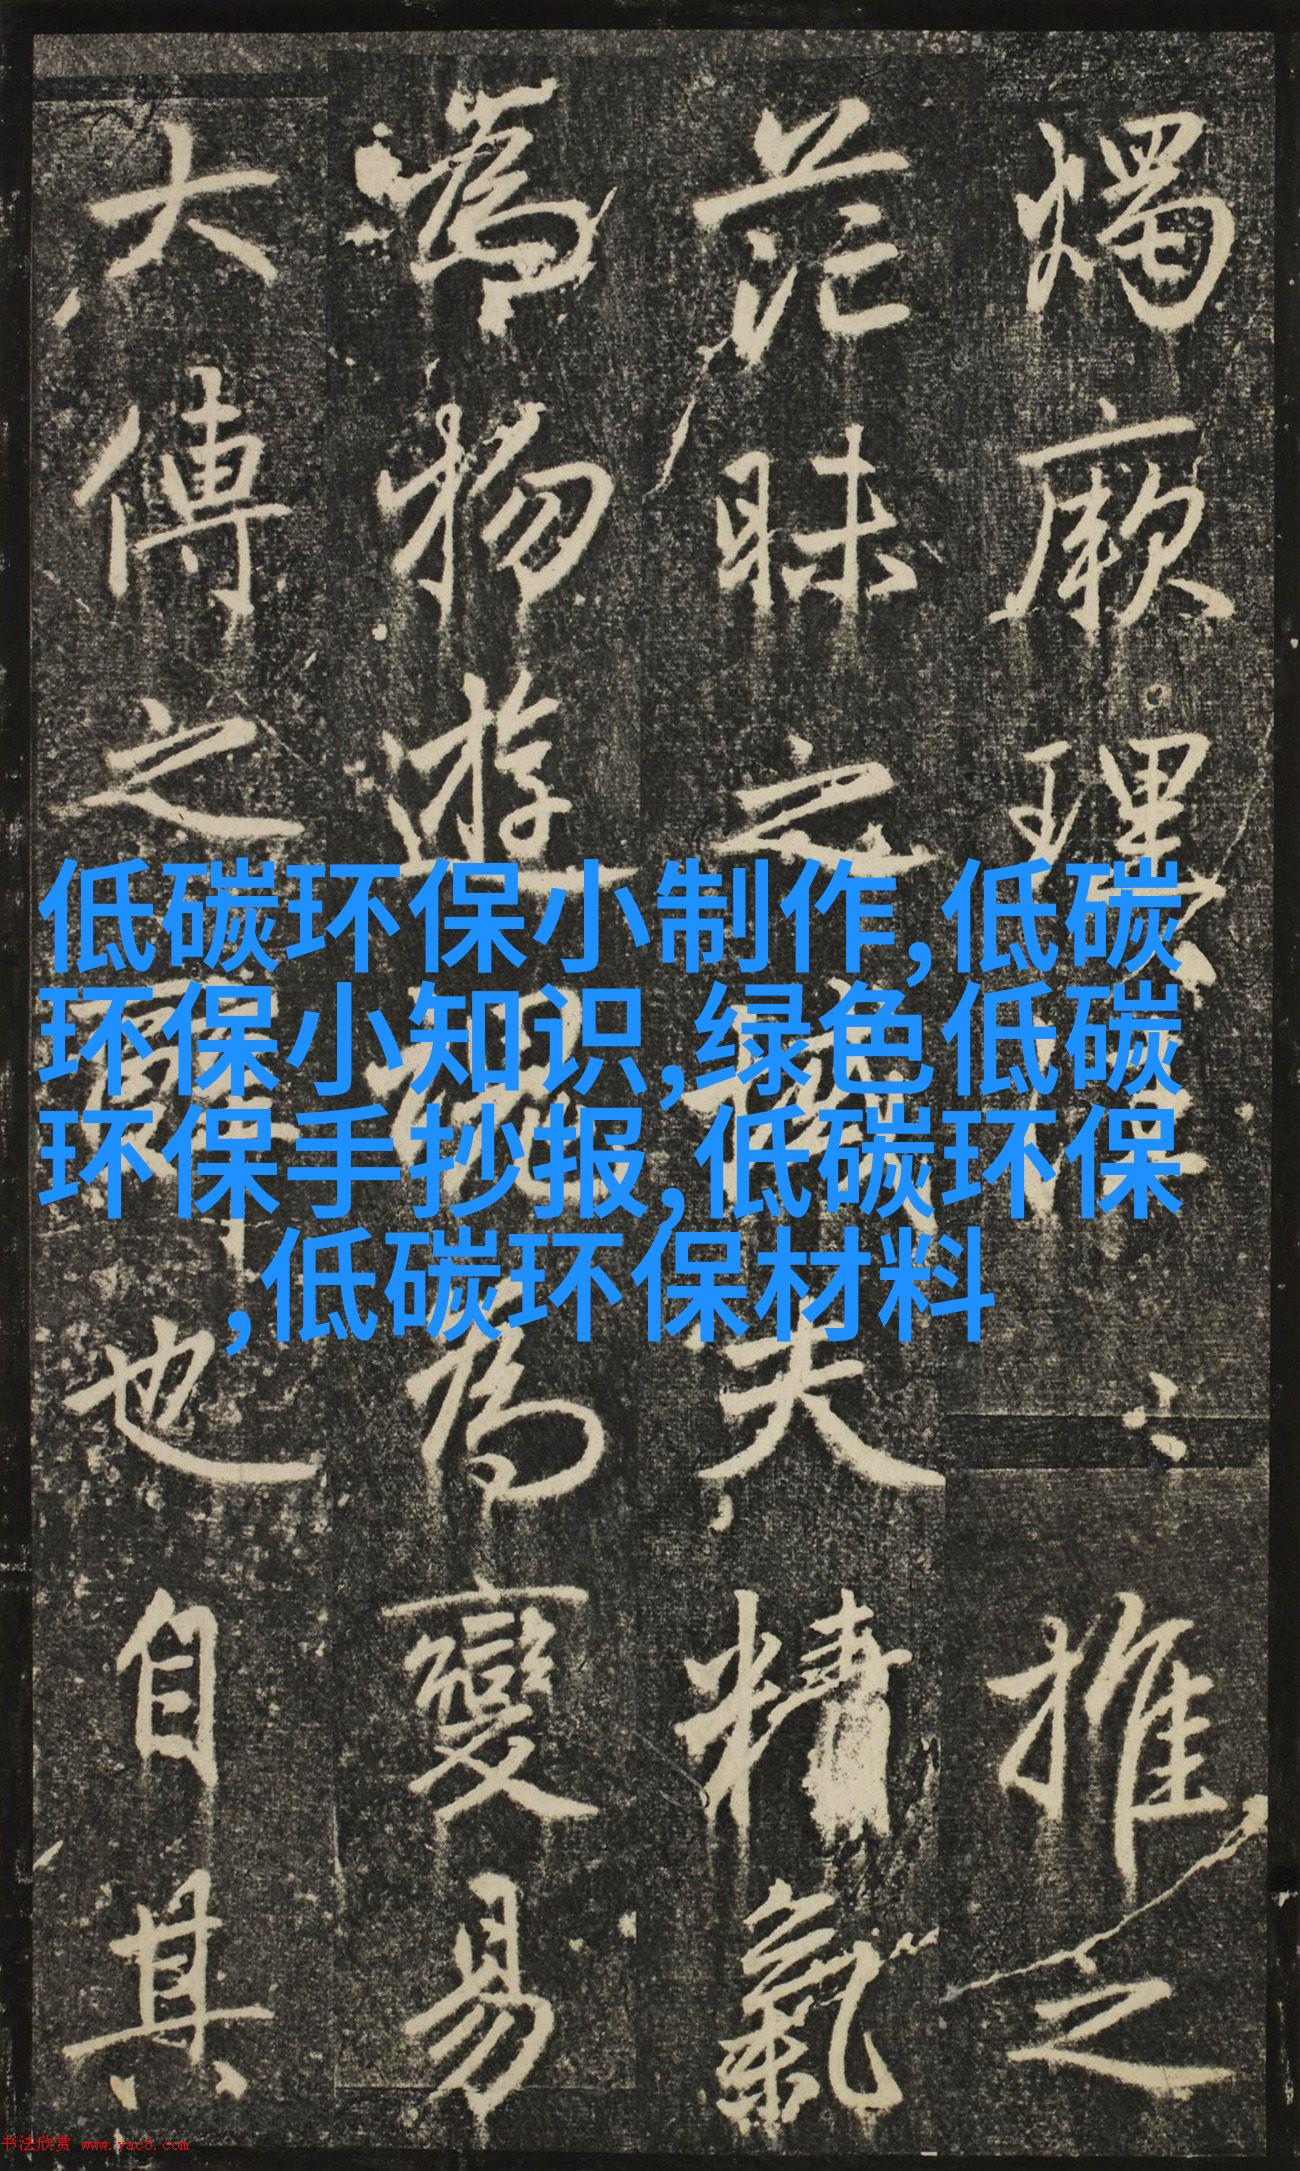 燭厥理推之
茫昧之夫精氣
為物遊魂為變易
大傳之也自其
低碳环保小制作,低碳
环保小知识,绿色低碳
环保手抄报,低碳环保
,低碳环保材料
书法欣赏 www.yac8.com